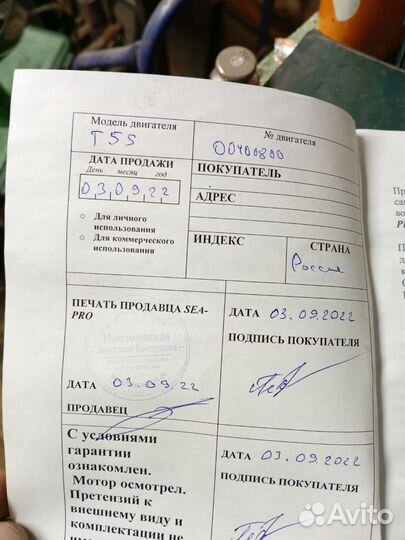 Модель двигателя
T 5S
№ двигателя
D0400800
ДАТА ПРОДАЖИ
День месяц год
03.09.22
ПОКУПАТЕЛЬ
АДРЕС
Для личного
использования
Для коммерческого
использования
ИНДЕКС
СТРАНА
Россия
ПЕЧАТЬ ПРОДАВЦА SEA-
PRO
Максимовская
Анастасия Викторовна
ДАТА 03.09.22
ПРОДАВЕЦ
ДАТА 03.09.2022
ПОДПИСЬ ПОКУПАТЕЛЯ
С условиями
гарантии
ознакомлен.
Мотор осмотрел.
Претензий к
внешнему виду и
комплектации не
ДАТА 03.09.2022
ПОДПИСЬ ПОКУПАТЕЛЯ
Avito